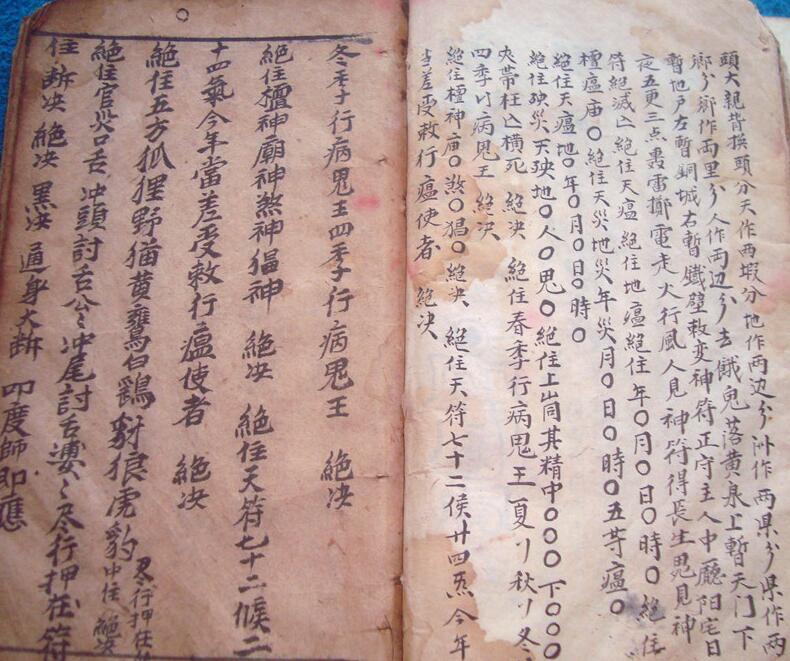 頭大親背換頭分天作两塅分地作两边分洲作两県分県作两
鄉分鄉作两里分人作两边分去餓鬼落黄泉上暫天门下
暫地戶左暫銅城右暫鐵壁敕变神符正守主人中廳阳宅日
夜五更三点轟雷擲電走火行風人見神符得長生鬼見神
符絕滅亡絕住天瘟絕住地瘟絕住年〇月〇日〇時〇絕住
檀瘟庙〇絕住天災地災年災月〇日〇時〇五䓁瘟〇
絕住天瘟地〇年〇月〇日〇時〇
絕住殃災天殃地〇人〇鬼〇絕住上峝其精中〇〇〇下〇〇〇
夭帯枉亡横死 絕决 絕住春季行病鬼王夏〃秋〃冬〃
四季〃病鬼王 絕决
絕住檀神庙〇煞〇猖〇絕决 絕住天符七十二侯廿四炁今年
当差受敕行瘟使者 絕决
冬季行病鬼王四季行病鬼王 絕决
絕住檀神廟神煞神猖神 絕决 絕住天符七十二候二
十四氣今年當差受敕行瘟使者 絕决
絕住五方狐狸野猫黄鶯白鷄豺狼虎豹 尽行押在符中住 絕决
絕住官災口舌冲頭討舌公〻冲尾討舌婆〻尽行押在符
住 断决 絕决 黑决 通身大断 即度師即應